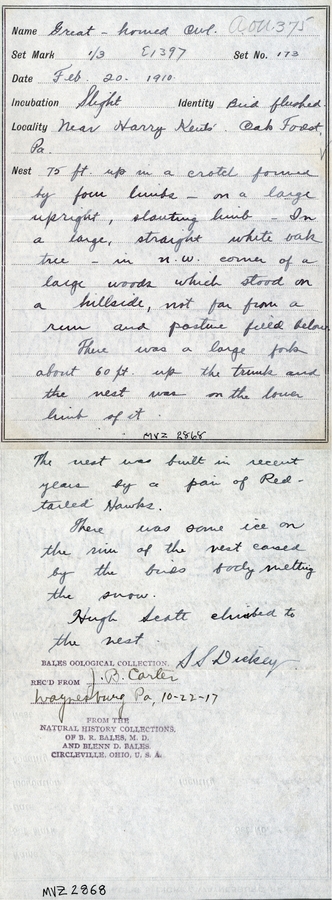 Name Great-horned Owl. AOU 375
Set Mark 1/3 E1397 Set No. 173
Date Feb. 20. 1910.
Incubation Slight Identity Bird flushed.
Locality Near Harry Kents'. Oak Forest,
Pa.
Nest 75 ft. up in a crotch formed
by four limbs - on a large
upright, slanting limb - In
a large, straight white oak
tree - in n.w. corner of a
large woods which stood on
a hillside, not far from a
run and pasture field below.
There was a large fork
about 60 ft. up the trunk and
the nest was on the lower
limb of it.
MVZ 2868
The nest was built in recent
years by a pair of Red-
tailed Hawks.
There was some ice on
the rim of the nest caused
by the birds body melting
the snow.
Hugh Scott climbed to
the nest.
S S Dickey
BALES OOLOGICAL COLLECTION.
REC'D FROM J. B. Carter
Waynesburg Pa, 10-22-17
FROM THE
NATURAL HISTORY COLLECTIONS,
OF B. R. BALES, M. D.
AND BLENN D. BALES.
CIRCLEVILLE, OHIO, U. S. A.
MVZ 2868